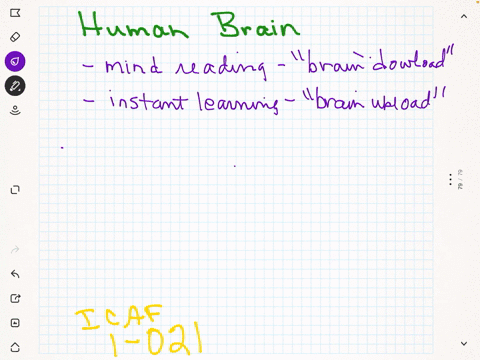 Human Brain
- mind reading - "brain dowload"
- instant learning - "brain upload"
79 / 79
I C A F
1-021